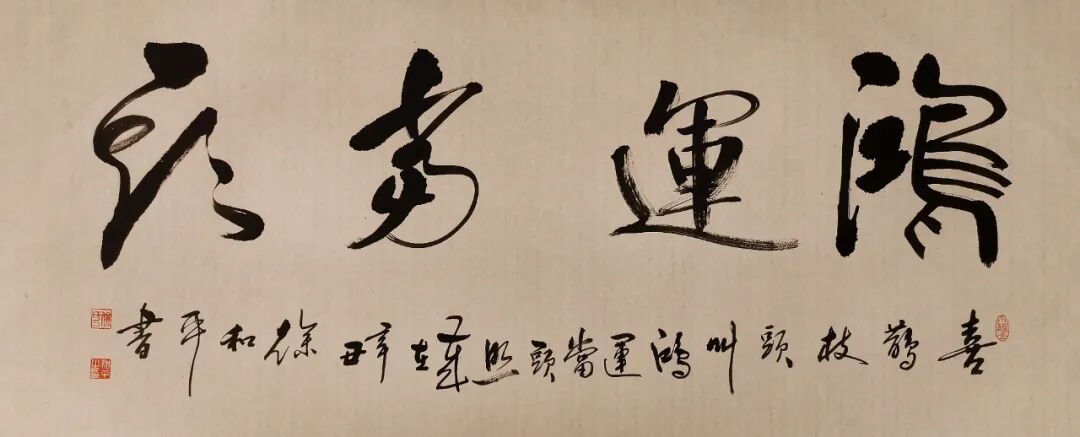 鴻運當頭
喜鵲枝頭叫鴻運當頭照歲在辛丑徐和平書